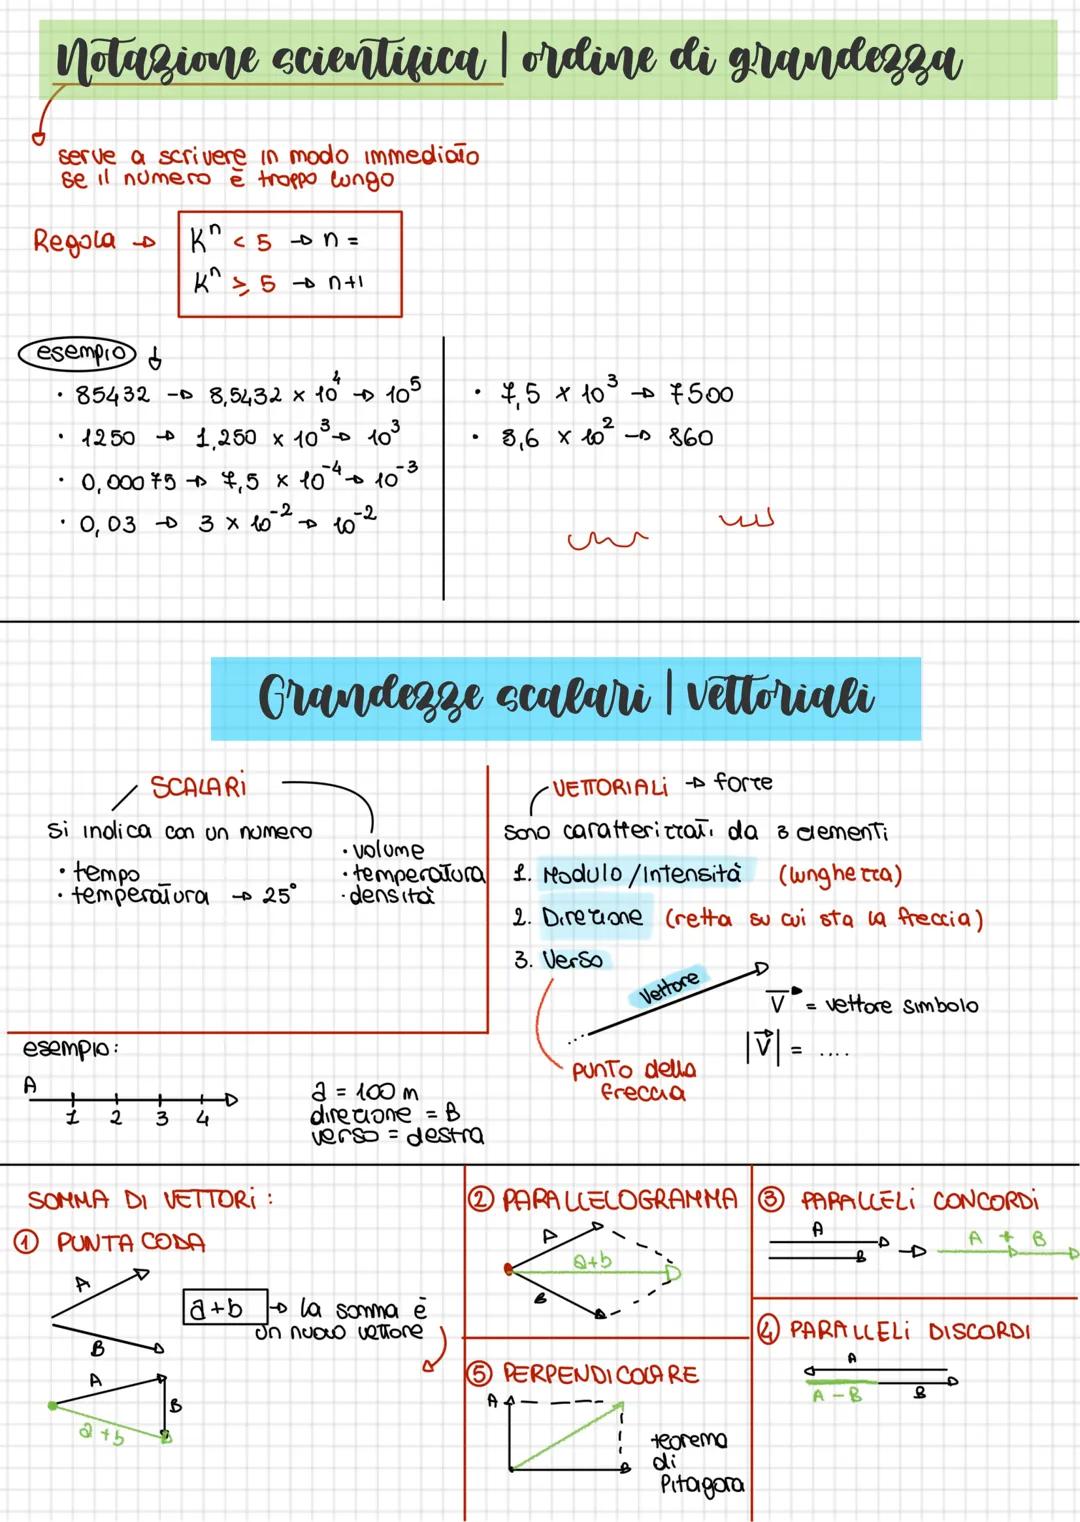 Notazione scientifica | ordine di grandezza
serve a scrivere in modo immediato
se il numero è troppo lungo
Regola →
Kⁿ < 5 → n =
Kⁿ ≥ 5 → n+1
esempio ↓
• 85432 → 8,5432 × 10⁴ → 10⁵
• 1250 → 1,250 × 10³ → 10³
• 0,00075 → 7,5 × 10⁻⁴ → 10⁻³
• 0,03 → 3 × 10⁻² → 10⁻²
• 7,5 × 10³ → 7500
• 8,6 × 10² → 860
Grandezze scalari | vettoriali
SCALARI
Si indica con un numero
• tempo
• temperatura → 25°
• volume
• temperatura
• densità
VETTORIALI → forze
Sono caratterizzati da 3 elementi
1. Modulo/Intensità (lunghezza)
2. Direzione (retta su cui sta la freccia)
3. Verso
Vettore
V⃗ = vettore simbolo
|V⃗| = ....
punto della
freccia
esempio:
A
1 2 3 4
a = 100 m
direzione = B
verso = destra
SOMMA DI VETTORI:
① PUNTA CODA
A
B
a+b → la somma è
un nuovo vettore
A
B
a+b
② PARALLELOGRAMMA
A
a+b
B
③ PARALLELI CONCORDI
A
B
A + B
④ PARALLELI DISCORDI
A
A - B
B
⑤ PERPENDICOLARE
A
B
teorema
di
Pitagora